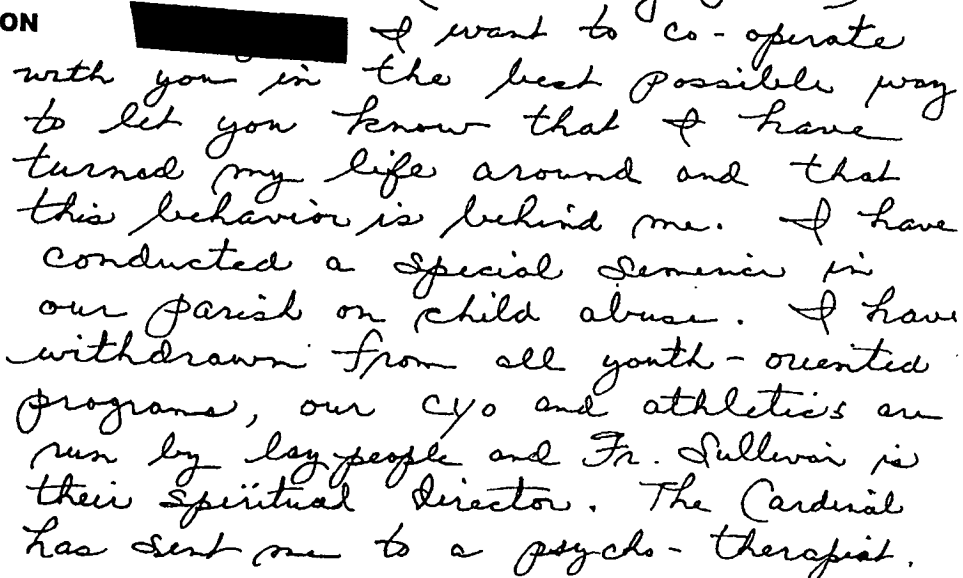 ON I want to co-operate
with you in the best possible way
to let you know that I have
turned my life around and that
this behavior is behind me. I have
conducted a special in
our parish on child abuse. I have
withdrawn from all youth-oriented
programs, our CYO and athletics are
run by lay people and Fr. Sullivan is
their spiritual director. The Cardinal
has sent me to a psycho-therapist.